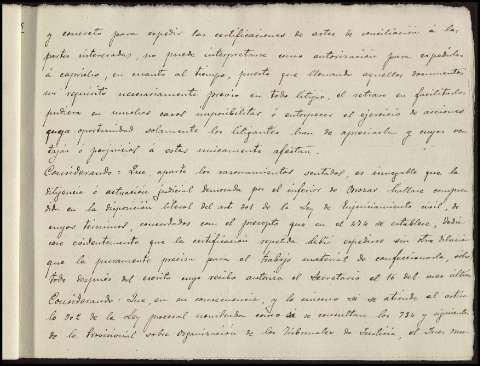 y concreto para expedir las certificaciones de actos de conciliación á las
partes interesadas, no puede interpretarse como autorización para expedirlas
á capricho, en cuanto al tiempo, puesto que llenando aquellos documentos
un requisito necesariamente previo en todo litigio, el retraso en facilitarlos
pudiera en muchos casos imposibilitar ó entorpecer el ejercicio de acciones
cuya oportunidad solamente los litigantes han de apreciarla y cuyas ven
tajas ó perjuicios a estos unicamente afectan.
Considerando: Que aparte los razonamientos sentados, es innegable que la
diligencia ó actuación judicial demorada por el inferior de hállase compren
dida en la disposición literal del art 301 de la Ley de Enjuiciamiento civil, de
cuyos terminos, concordados con el precepto que en el 474 se establece, dedú
cese evidentemente que la certificación repetida debió expedirse sin otra dilación
que la puramente precisa para el trabajo material de confeccionarla, sobre
todo después del escrito cuyo recibo autoriza el Secretario el 16 del mes último
Considerando: Que, en su consecuencia, y lo mismo si se atiende al artícu
lo 302 de la Ley procesal nombrada como si se consultan los 734 y siguientes
de la Provisional sobre organización de los Tribunales de Justicia, el Juez mu